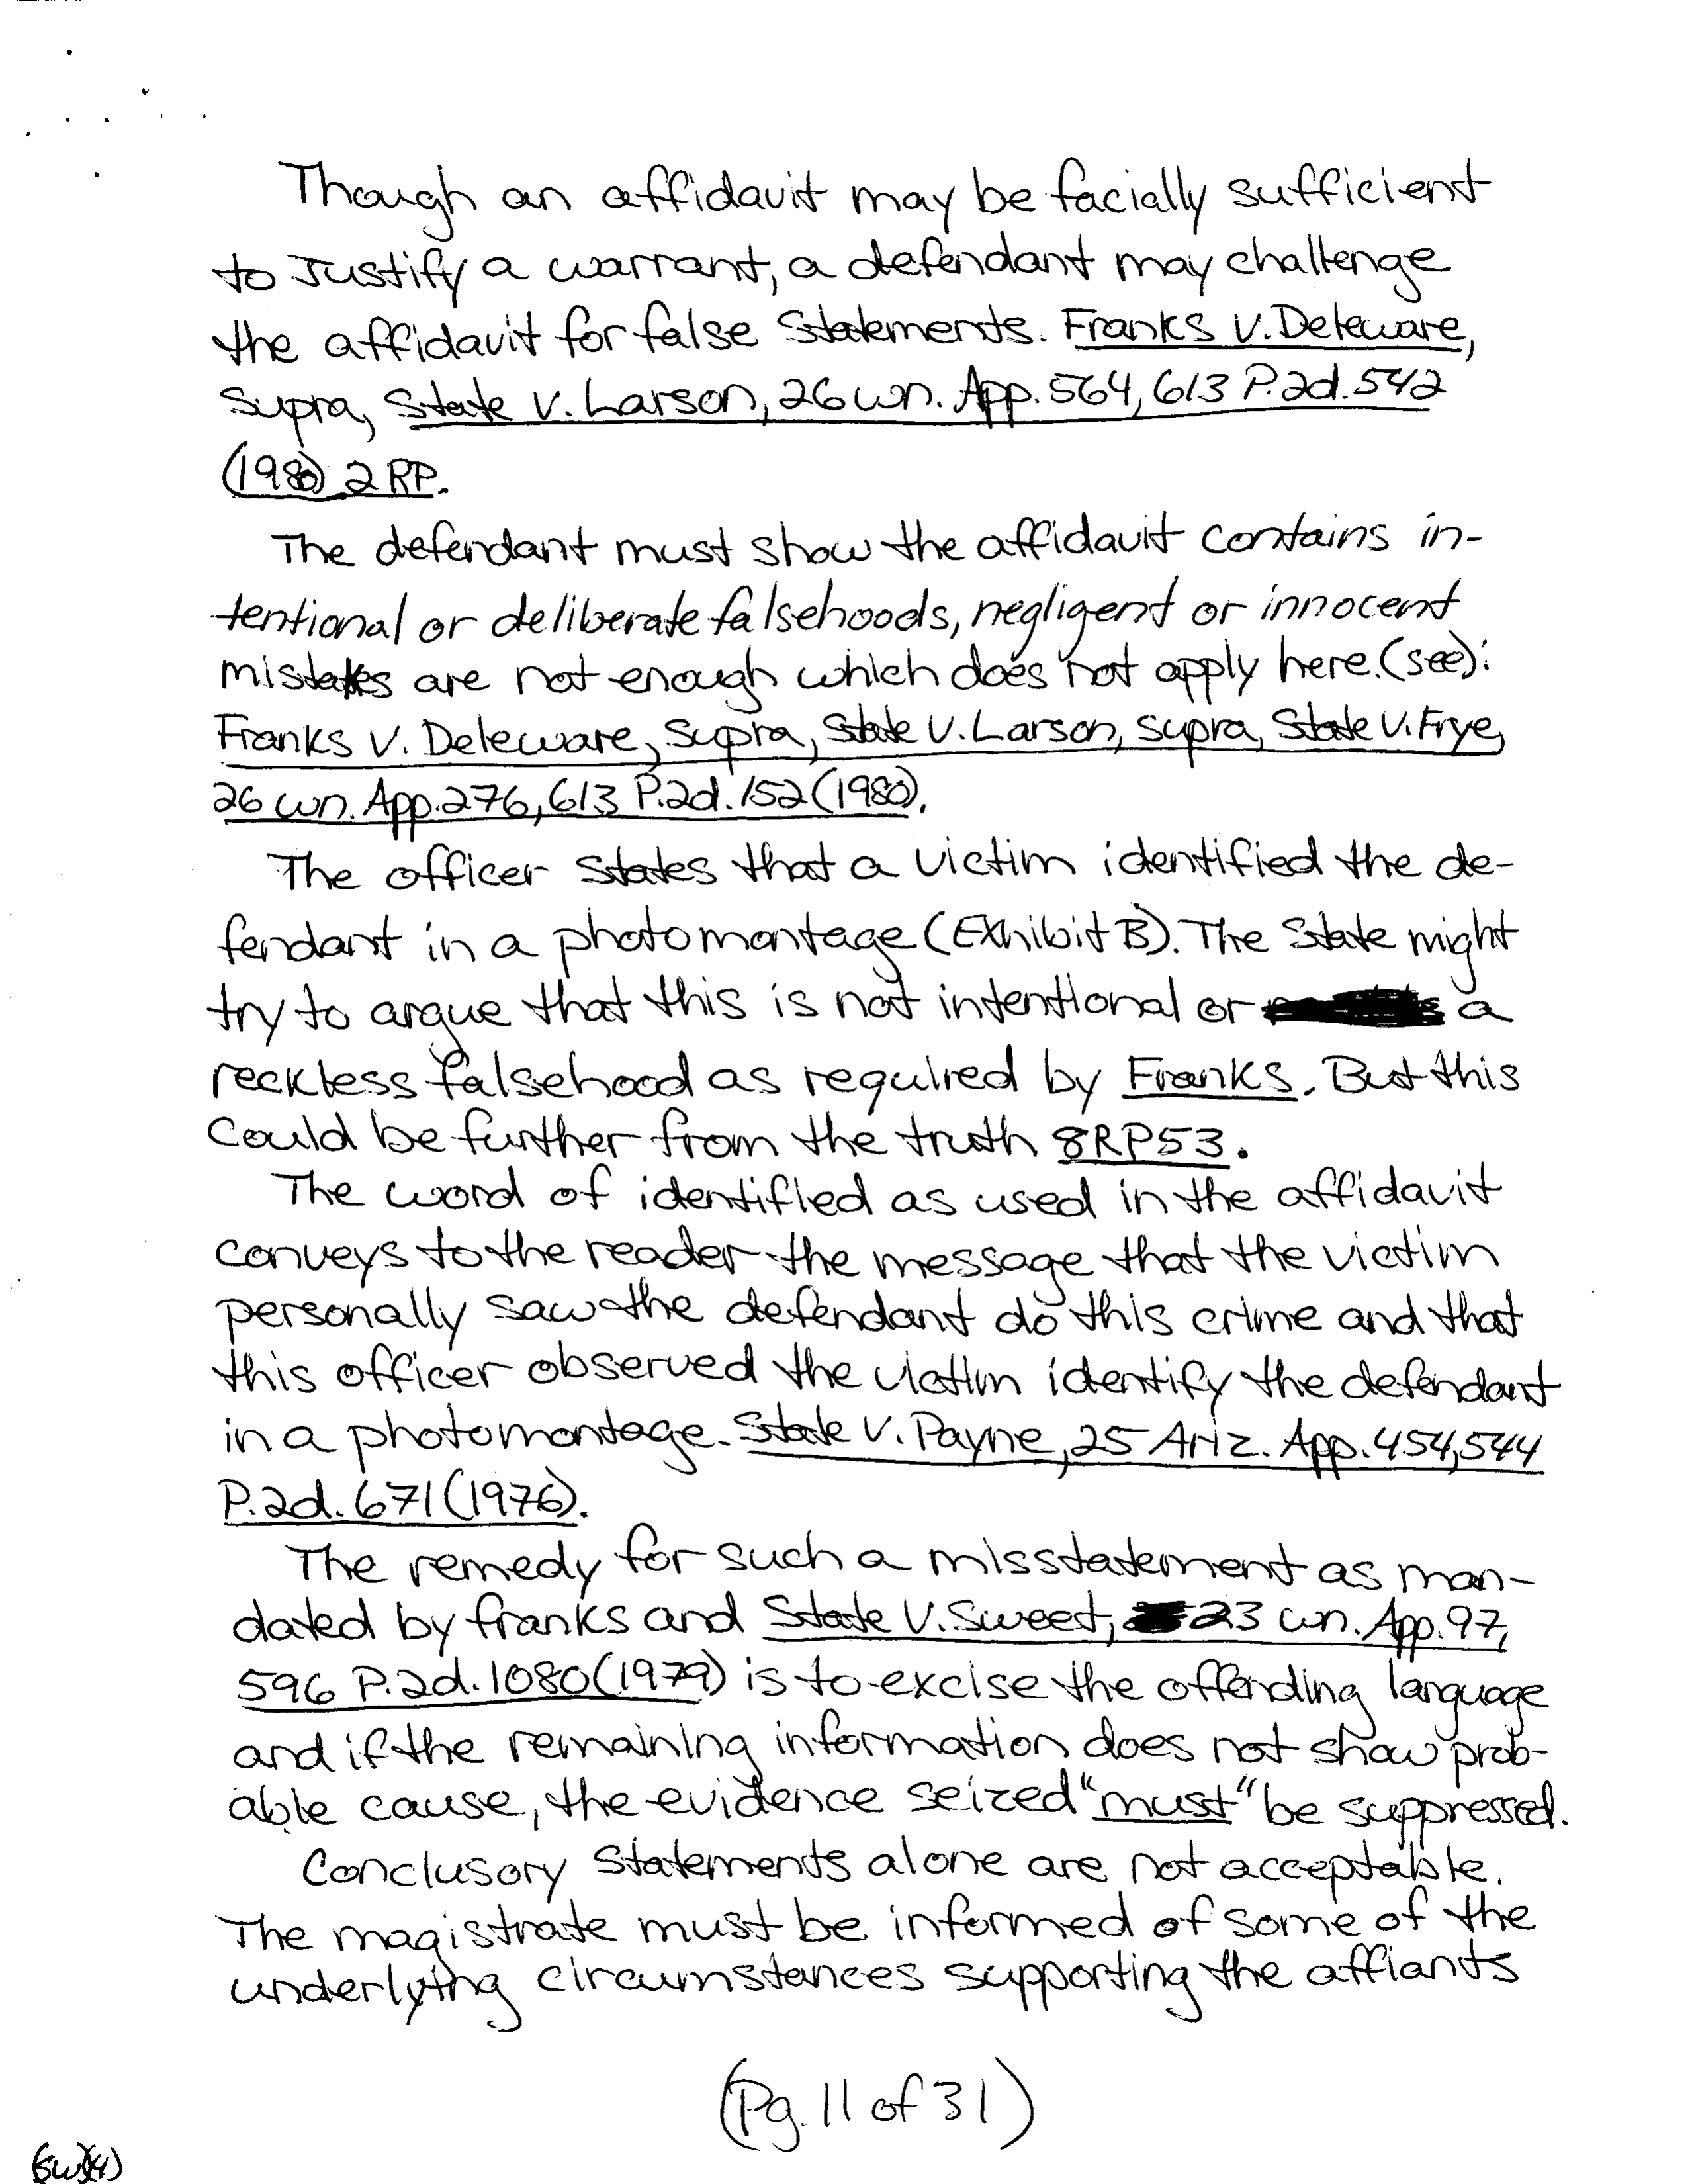 Though an affidavit may be facially sufficient
to Justify a warrant, a defendant may challenge
the affidavit for false Statements. Franks v. Deleware,
Supra, State v. Larson, 26 wn. App. 564, 613 P.2d. 542
(1980) 2 RP.
The defendant must show the affidavit contains in-
tentional or deliberate falsehoods, negligent or innocent
mistakes are not enough which does not apply here. (see):
Franks v. Deleware, Supra, State v. Larson, supra, State v. Frye,
26 wn. App. 276, 613 P.2d. 152 (1980).
The officer States that a victim identified the de-
fendant in a photomontage (EXhibit B). The State might
try to argue that this is not intentional or a
reckless falsehood as required by Franks. But this
Could be further from the truth 8RP53.
The word of identified as used in the affidavit
conveys to the reader the message that the victim
personally saw the defendant do this crime and that
this officer observed the victim identify the defendant
in a photomontage. State v. Payne, 25 Ariz. App. 454, 544
P.2d. 671 (1976).
The remedy for such a misstatement as man-
dated by franks and State v. Sweet, 23 wn. App. 97,
596 P.2d. 1080 (1979) is to excise the offending language
and if the remaining information does not show prob-
able cause, the evidence seized "must" be suppressed.
Conclusory Statements alone are not acceptable.
The magistrate must be informed of some of the
underlying circumstances supporting the affiants
(Pg. 11 of 31)
(SW)(4)